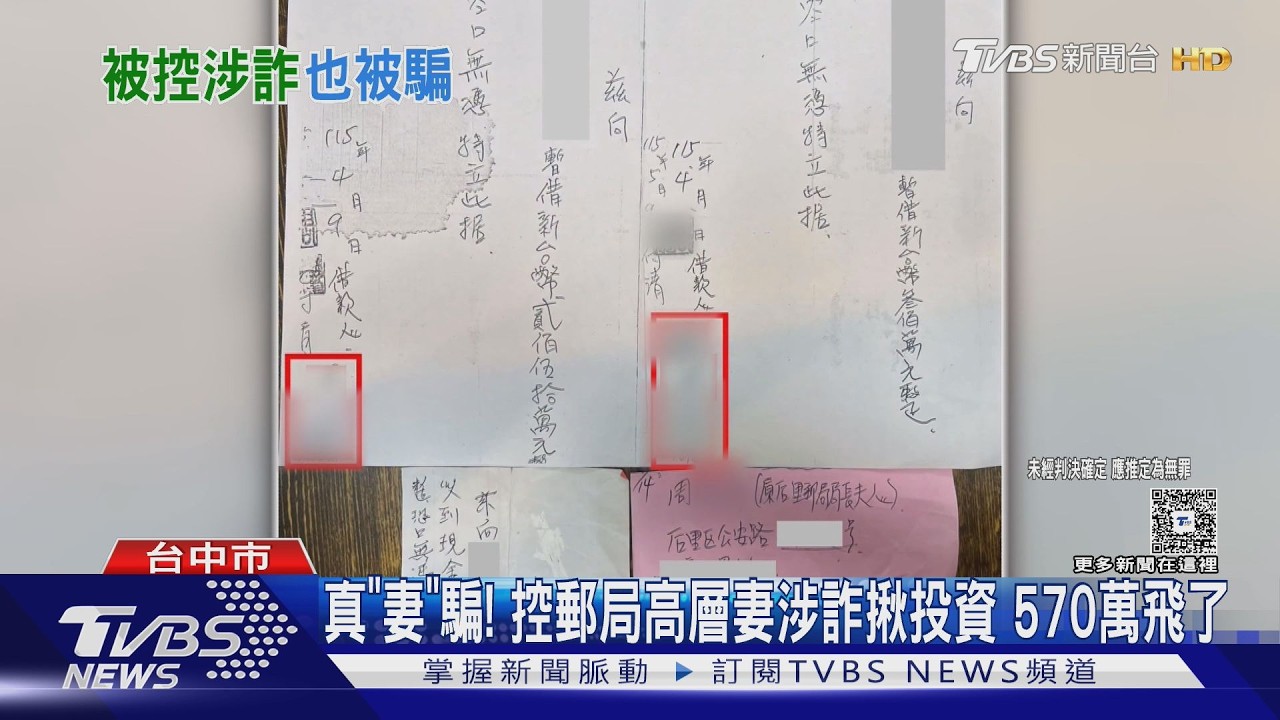 被控涉詐也被騙
TVBS新聞台 HD
茲向
暫借新台幣叁佰萬元整.
空口無憑特立此据.
115年4月
日借款人
115年5月
茲向
暫借新台幣貳佰伍拾萬元
口無憑特立此据.
115年4月9日借款人.
茲向
收到現金
周
(原后里郵局局長夫人)
后里区公安路
未經判決確定 應推定為無罪
TVBS
更多新聞在這裡
台中市
真"妻"騙! 控郵局高層妻涉詐揪投資 570萬飛了
TVBS NEWS
掌握新聞脈動 ▶ 訂閱TVBS NEWS頻道